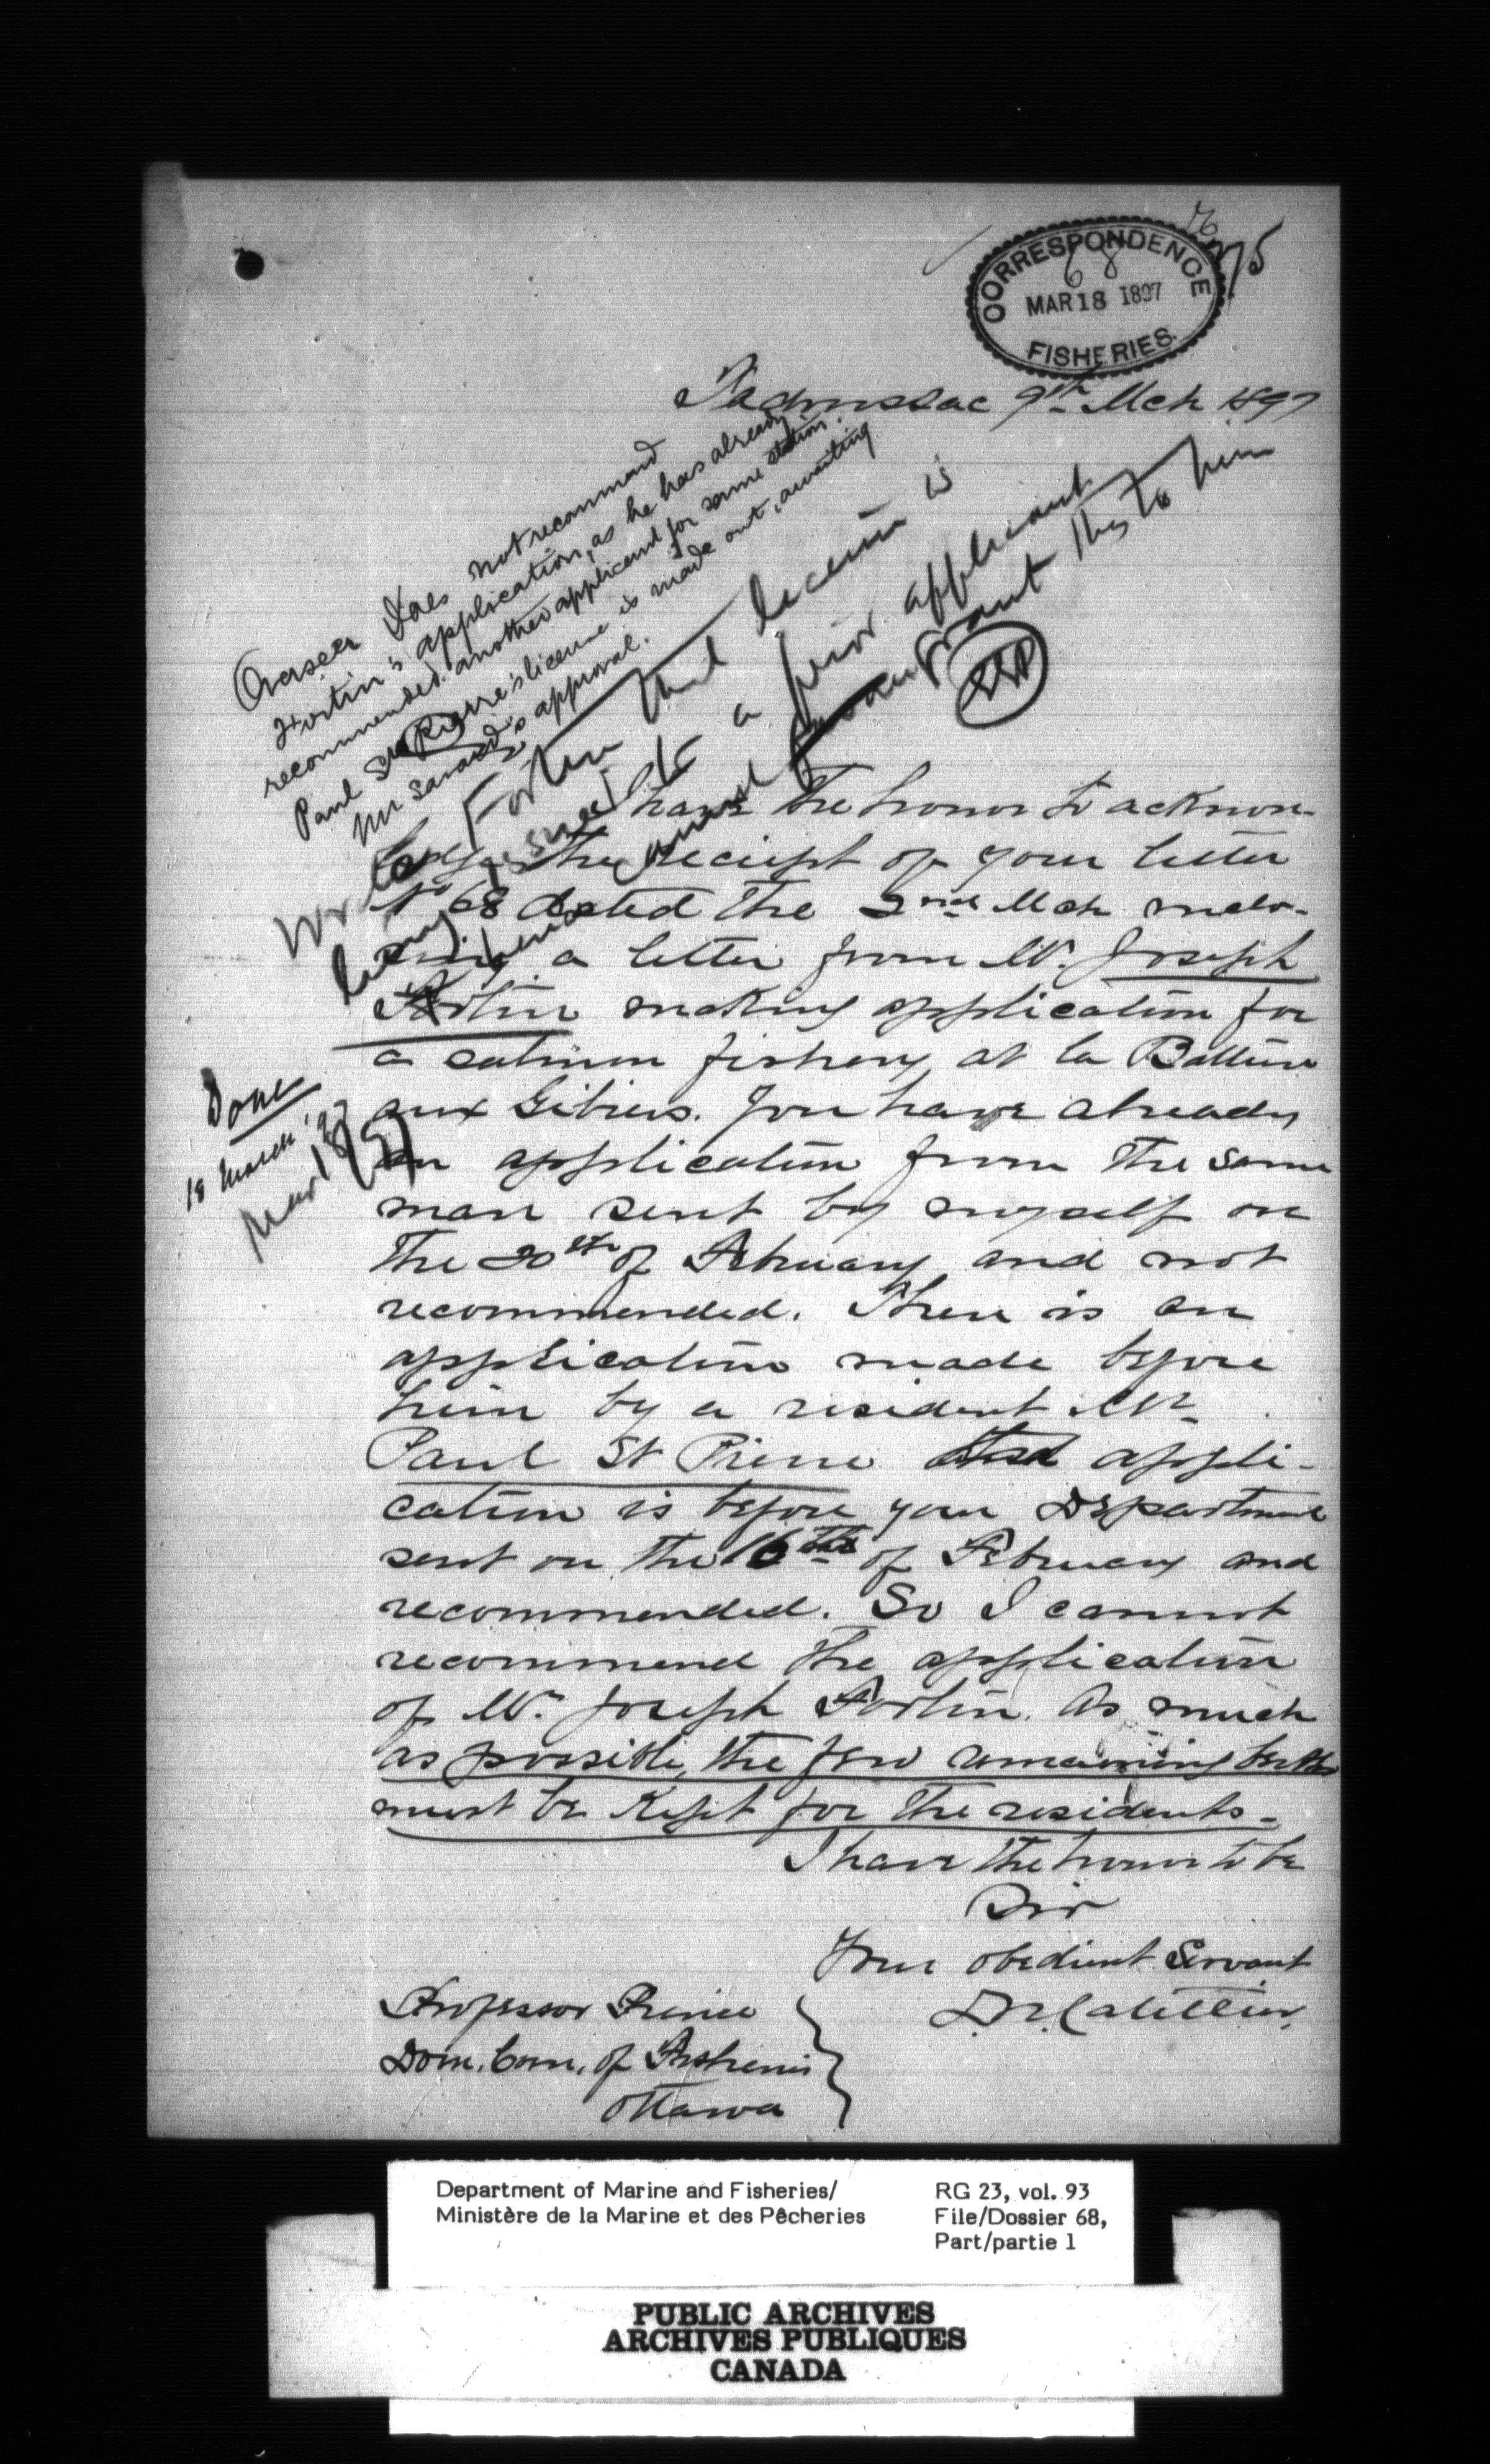 CORRESPONDENCE
68
MAR 18 1897
FISHERIES.
Tadoussac 9th Mch 1897
Overseer does not recommend
Fortin's application, as he has already
recommended another applicant for same station.
Paul St. Pierre's license is made out, awaiting
Mr Savard's approval.
Write Fortin that license is
being issued to a prior applicant
and cannot grant this to him
Done
18 March '97
Mar 18/97
have the honor to acknow-
ledge the reciept of your letter
No 68 dated the 2nd Mch inclo-
sing a letter from Mr. Joseph
Fortin making application for
a salmon fishery at la Batture
aux Gibiers. You have already
an application from the same
man sent by myself on
the 20th of February and not
recommended. There is an
application made before
him by a resident Mr
Paul St Pierre appli-
cation is before your Department
sent on the 16th of February and
recommended. So I cannot
recommend the application
of Mr. Joseph Fortin. As much
as possible, the few remaining berths
must be kept for the residents.
I have the honor to be
Sir
Your obedient Servant
Professor Prince
Dom. Com. of Fisheries
Ottawa
Department of Marine and Fisheries/
Ministère de la Marine et des Pêcheries
RG 23, vol. 93
File/Dossier 68,
Part/partie 1
PUBLIC ARCHIVES
ARCHIVES PUBLIQUES
CANADA